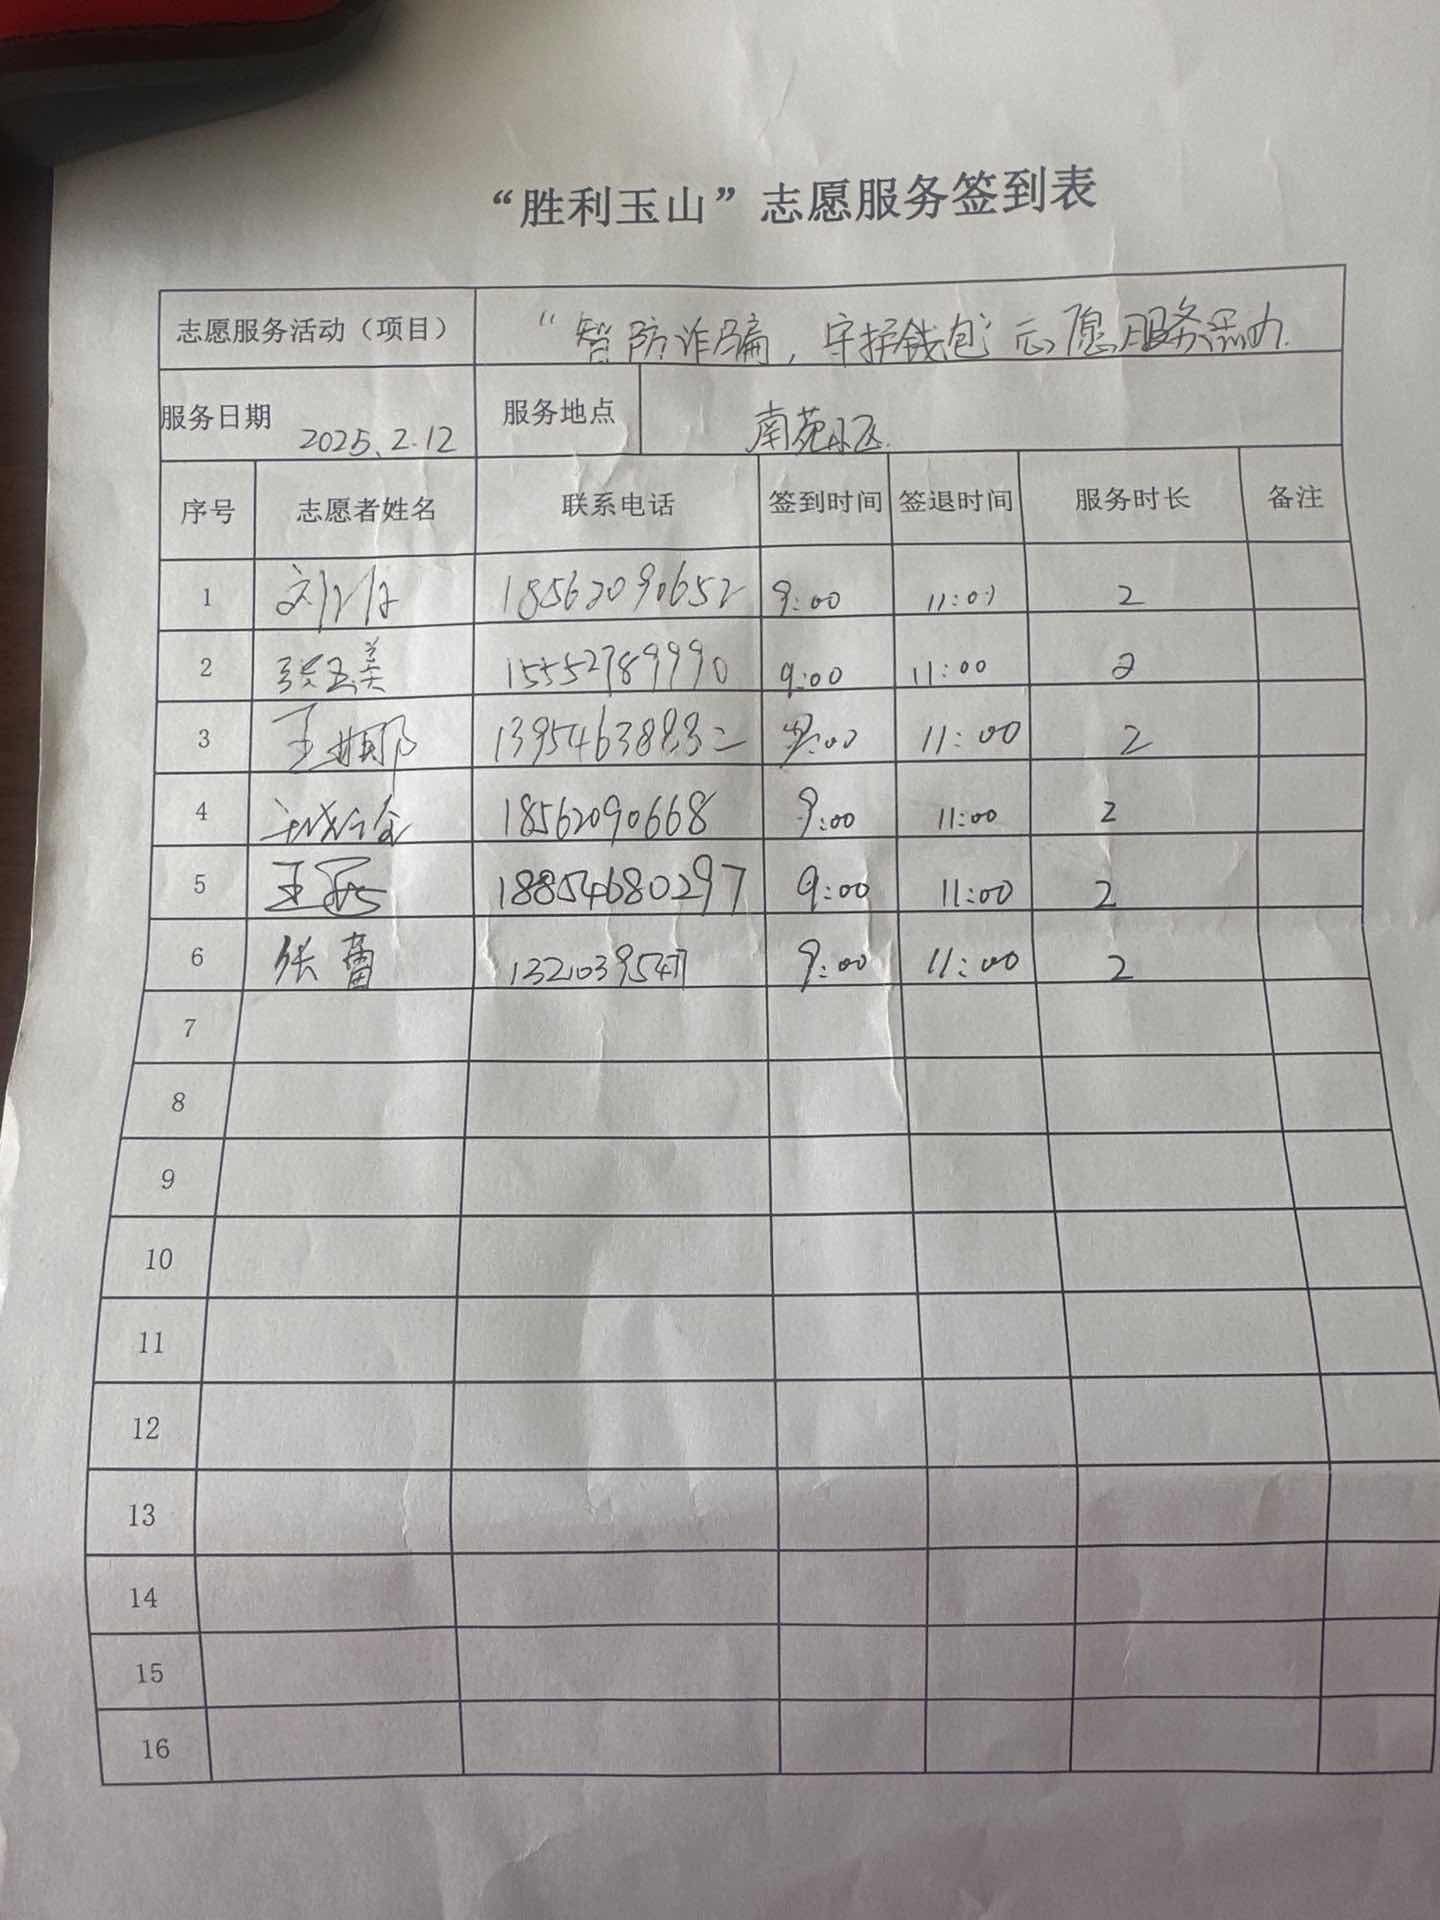 “胜利玉山”志愿服务签到表
志愿服务活动（项目） “智防诈骗，守护钱包”志愿服务活动.
服务日期 2025.2.12 服务地点 南苑小区.
序号 志愿者姓名 联系电话 签到时间 签退时间 服务时长 备注
1 18562090652 9:00 11:00 2
2 张玉美 15552789990 9:00 11:00 2
3 王娜 13954638832 9:00 11:00 2
4 18562090668 9:00 11:00 2
5 王 18854680297 9:00 11:00 2
6 张蕾 9:00 11:00 2
7
8
9
10
11
12
13
14
15
16